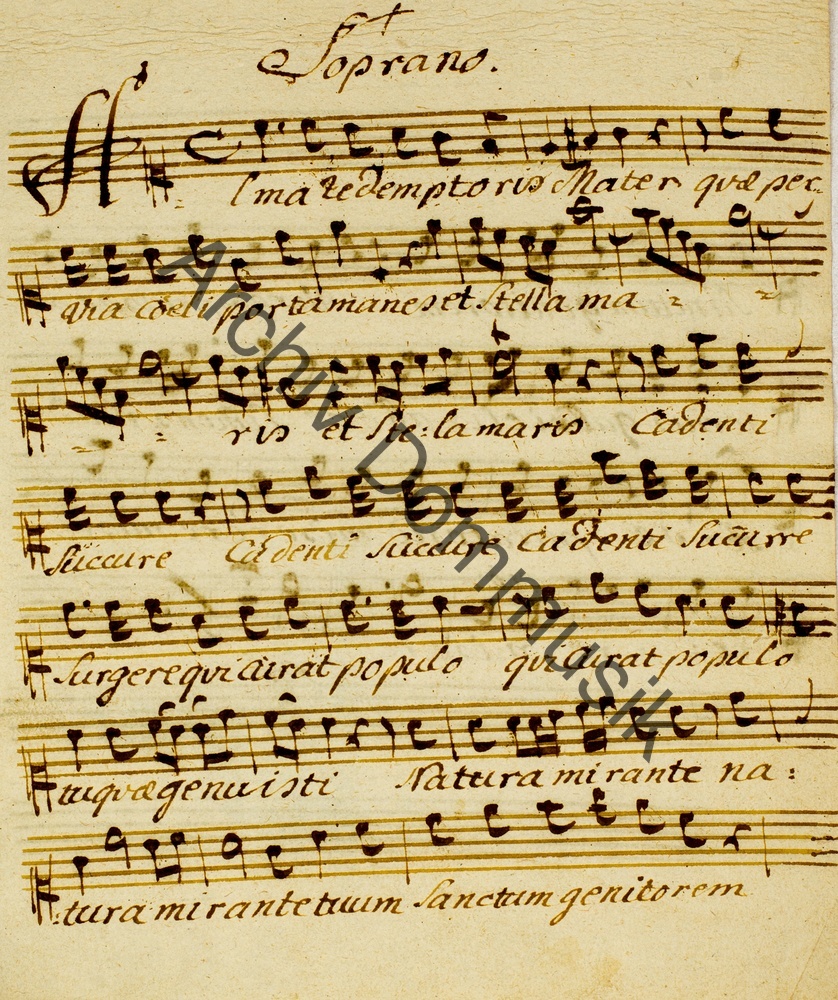 Soprano.
Alma Redemptoris Mater quæ per-
via coeli porta manes et Stella ma - -
- - ris et Ste:la maris Cadenti
Succure Cadenti Succure Cadenti Sucurre
Surgere qui Curat populo qui Curat populo
tu quæ genuisti Natura mirante na:
:tura mirante tuum Sanctum genitorem
Archiv Dommusik